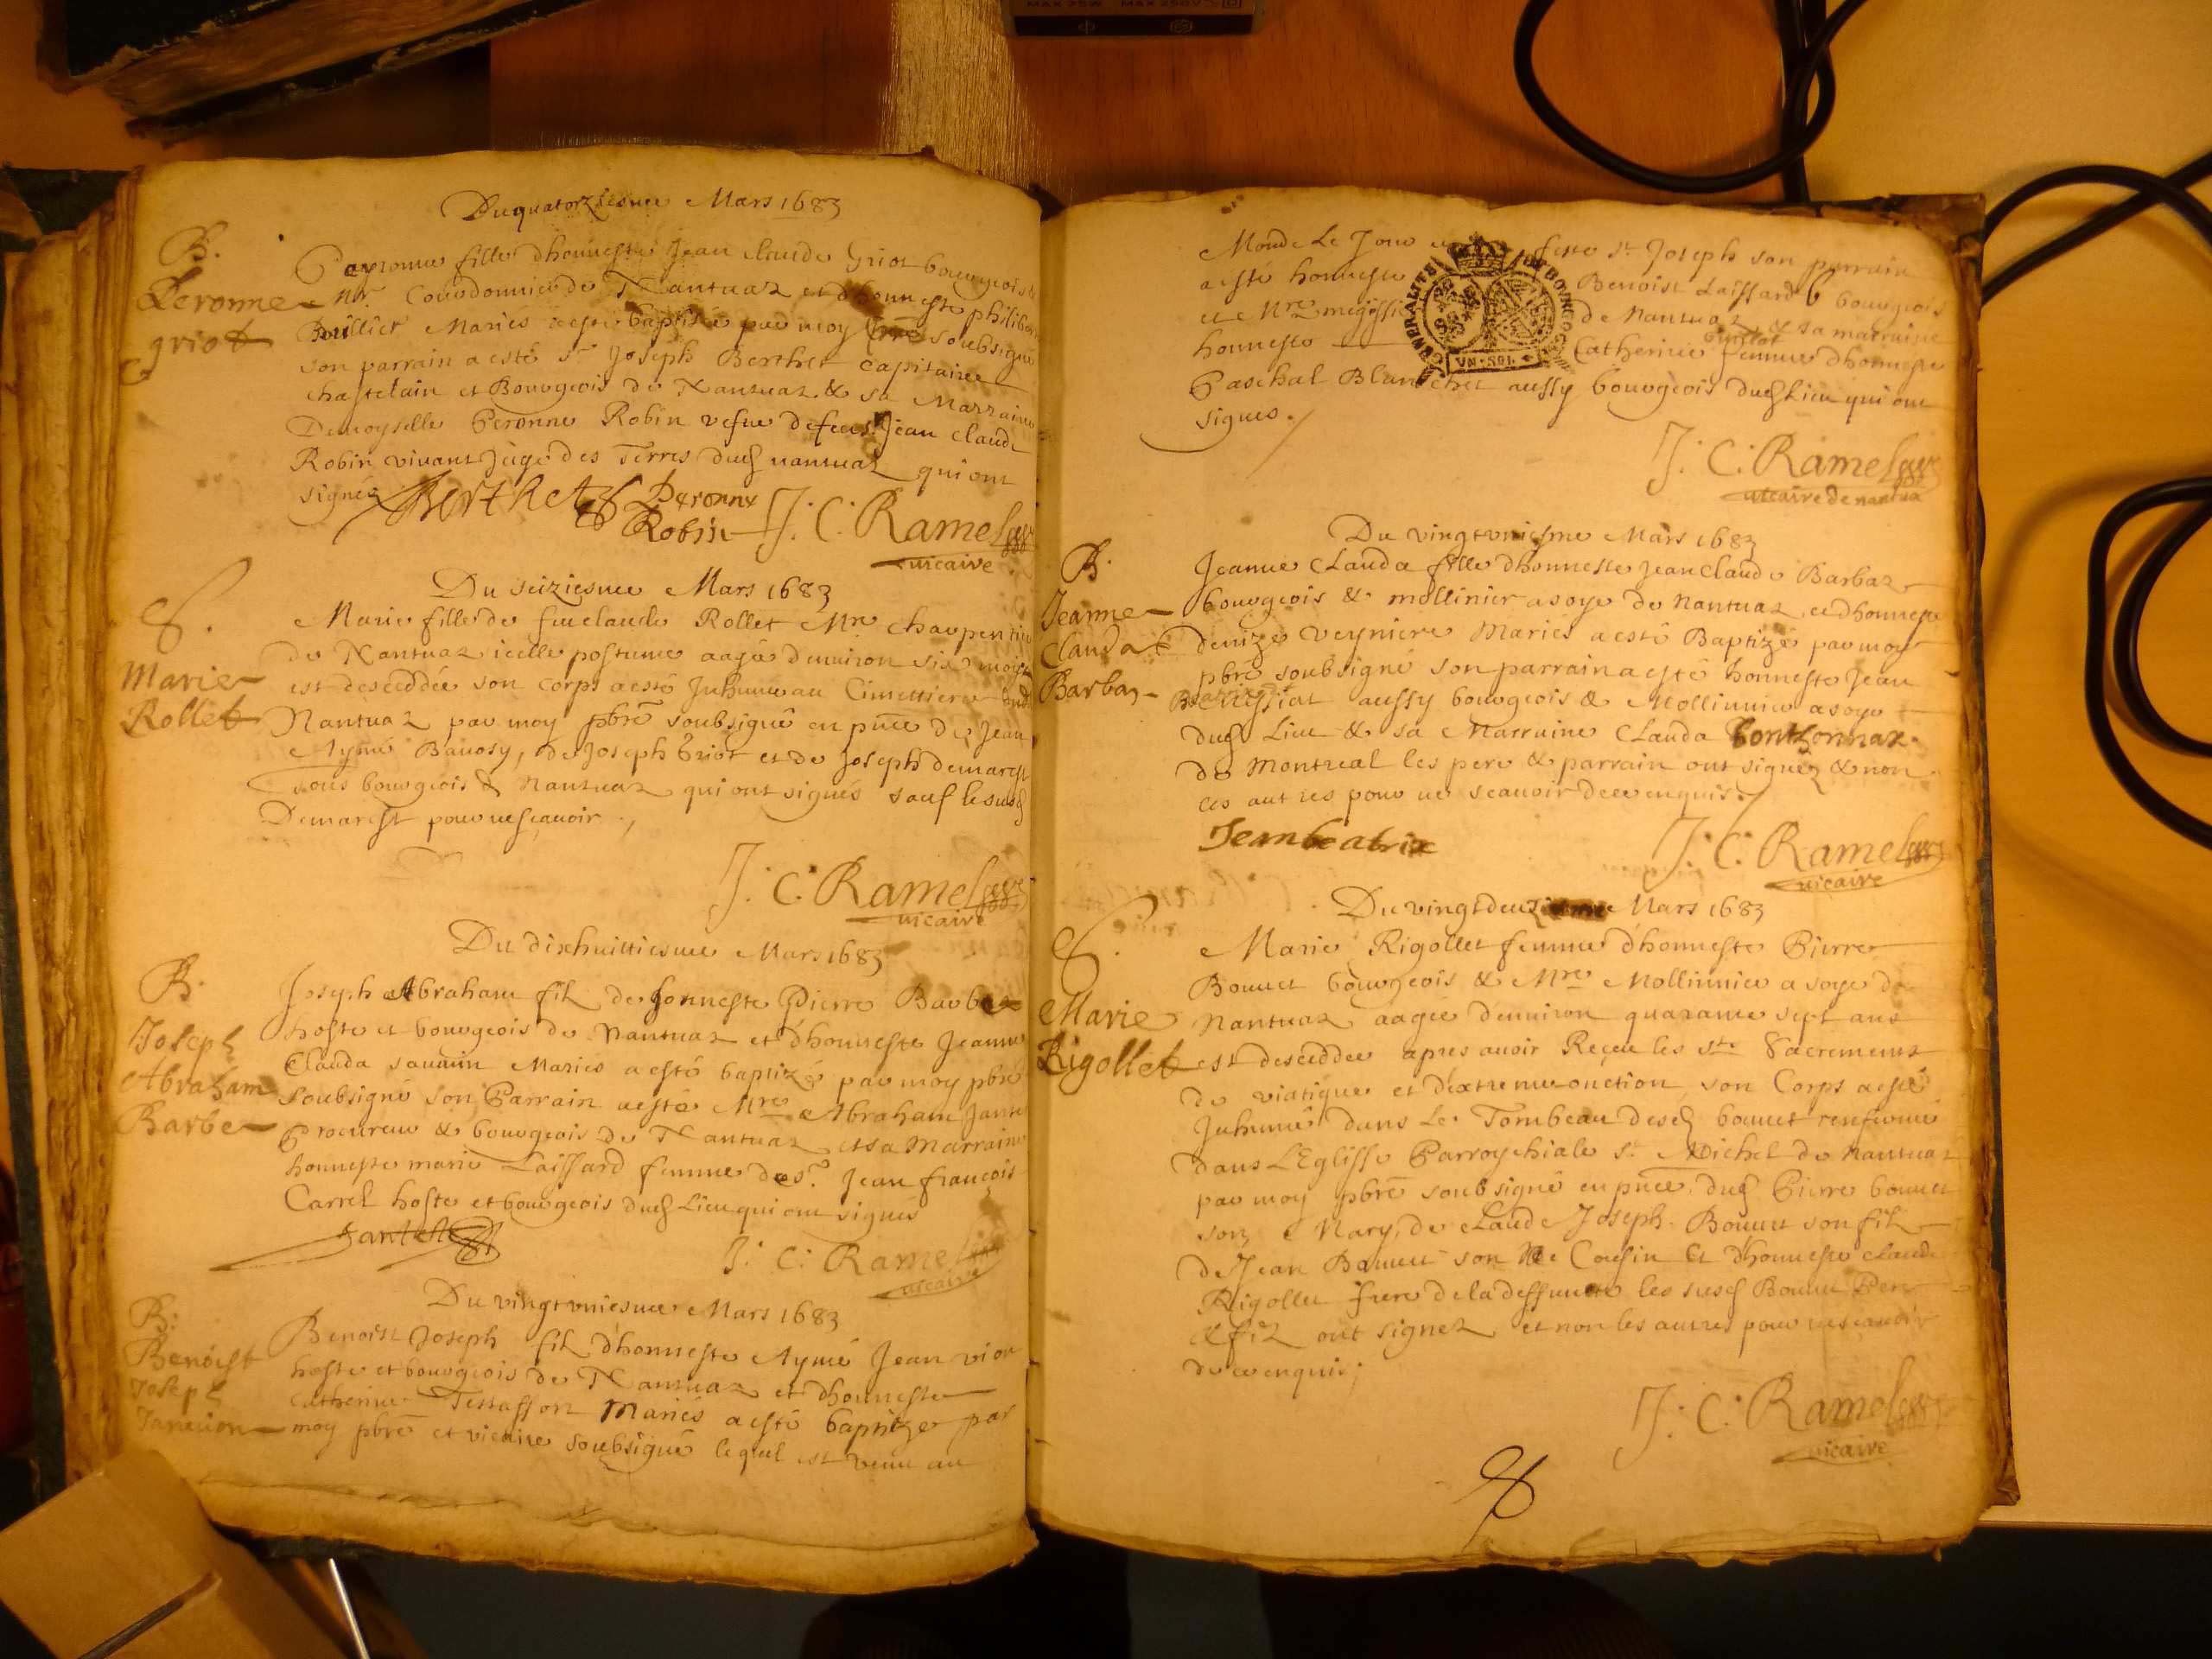 MAX 25W MAX 250V
Du quatorziesme Mars 1683
B.
Peronne
griot
Peyronne fille dhonneste Jean Claude Griot bourgeois &
Mre Courdonnier de Nantuaz et dhonneste philiber
Bouillier Maries a esté baptisée par moy soubsigné
son parrain a esté sr Joseph Berthet Capitaine
chastelain et Bourgeois de Nantuaz & sa Marraine
Demoyselle Peronne Robin vefue de feu sr Jean Claude
Robin vivant Juge des Terres dud nantuaz qui ont
signez Berthet Peronne
Robin J. C. Ramel
vicaire
Du seiziesme Mars 1683
S.
Marie
Rollet
Marie fille de feu Claude Rollet Mre charpentier
de Nantuaz icelle postume aagée denuiron six mois
est desceddée son corps a esté Inhumé au Cimettiere dud
Nantuaz par moy pbre soubsigné en pnce de Jean
Aymé Bauosy, de Joseph Griot et de Joseph demarest
tous bourgeois d Nantuaz qui ont signés sauf le susd
Demarest pour ne scauoir
J. C. Ramel
vicaire
Du dixhuittiesme Mars 1683
B.
Joseph
Abraham
Barbe
Joseph Abraham fil de honneste Pierre Barbe
hoste et bourgeois de Nantuaz et dhonneste Jeanne
Clauda sauuin Maries a esté baptizé par moy pbre
soubsigné son Parrain a esté Mre Abraham Jantet
Procureur & bourgeois de Nantuaz et sa Marraine
honneste marie Laissard femme de sr. Jean francois
Carrel hoste et bourgeois dud Lieu qui ont signés
Jantet
J. C. Ramel
vicaire
Du vingtvniesme Mars 1683
B.
Benoist
Joseph
Janvion
Benoist Joseph fil dhonneste Aymé Jean vion
hoste et bourgeois de Nantuaz et dhonneste
Catherine Tessasson Mariés a esté baptize par
moy pbre et vicaire soubsigné lequel est venu au
Monde Le Jour feste st Joseph son parrain
a esté honneste Benoist Laissard bourgeois
et Mre megissier de Nantuaz & sa marraine
honneste Catherine femme dhonneste
GENERALITE DE BOURGOGNE
VN SOL
Paschal Blanchet aussy bourgeois dud Lieu qui ont
signes.
J. C. Ramel
vicaire de nantua
Du vingtvniesme Mars 1683
B.
Jeanne
Clauda
Barbaz
Jeanne Clauda fille dhonneste Jean Claude Barbaz
bourgeois & mollinier a soye de Nantuaz et dhonneste
denize veyniere Mariés a esté Baptizé par moy
pbre soubsigné son parrain a esté honneste Jean
Beatrix aussy bourgeois & Mollinnier a soye
dud Lieu & sa Marraine Clauda
de Montreal les pere & parrain ont signez & non
les autres pour ne scauoir de ce enquis.
Jean beatrix
J. C. Ramel
vicaire
Du vingtdeuziesme Mars 1683
S.
Marie
Rigollet
Marie Rigollet femme d'honneste Pierre
Bonnet bourgeois & Mre Mollinnier a soye de
Nantuaz aagée denuiron quarante sept ans
est desceddee apres auoir Receu les sts Sacrements
de viatique et d'extreme onction son Corps a esté
Inhumé dans Le Tombeau desd bonnet renfermé
dans L'Eglisse Parroychiale st Michel de Nantuaz
par moy pbre soubsigné en pnce dud Pierre bonnet
son Mary, de Claude Joseph Bonnet son fil
de Jean Bonnet son Cousin Et dhonneste Claude
Rigollet frere de la deffuncte les susd Bonnet Pere
& filz ont signez et non les autres pour ne scauoir
de ce enquis;
J. C. Ramel
vicaire